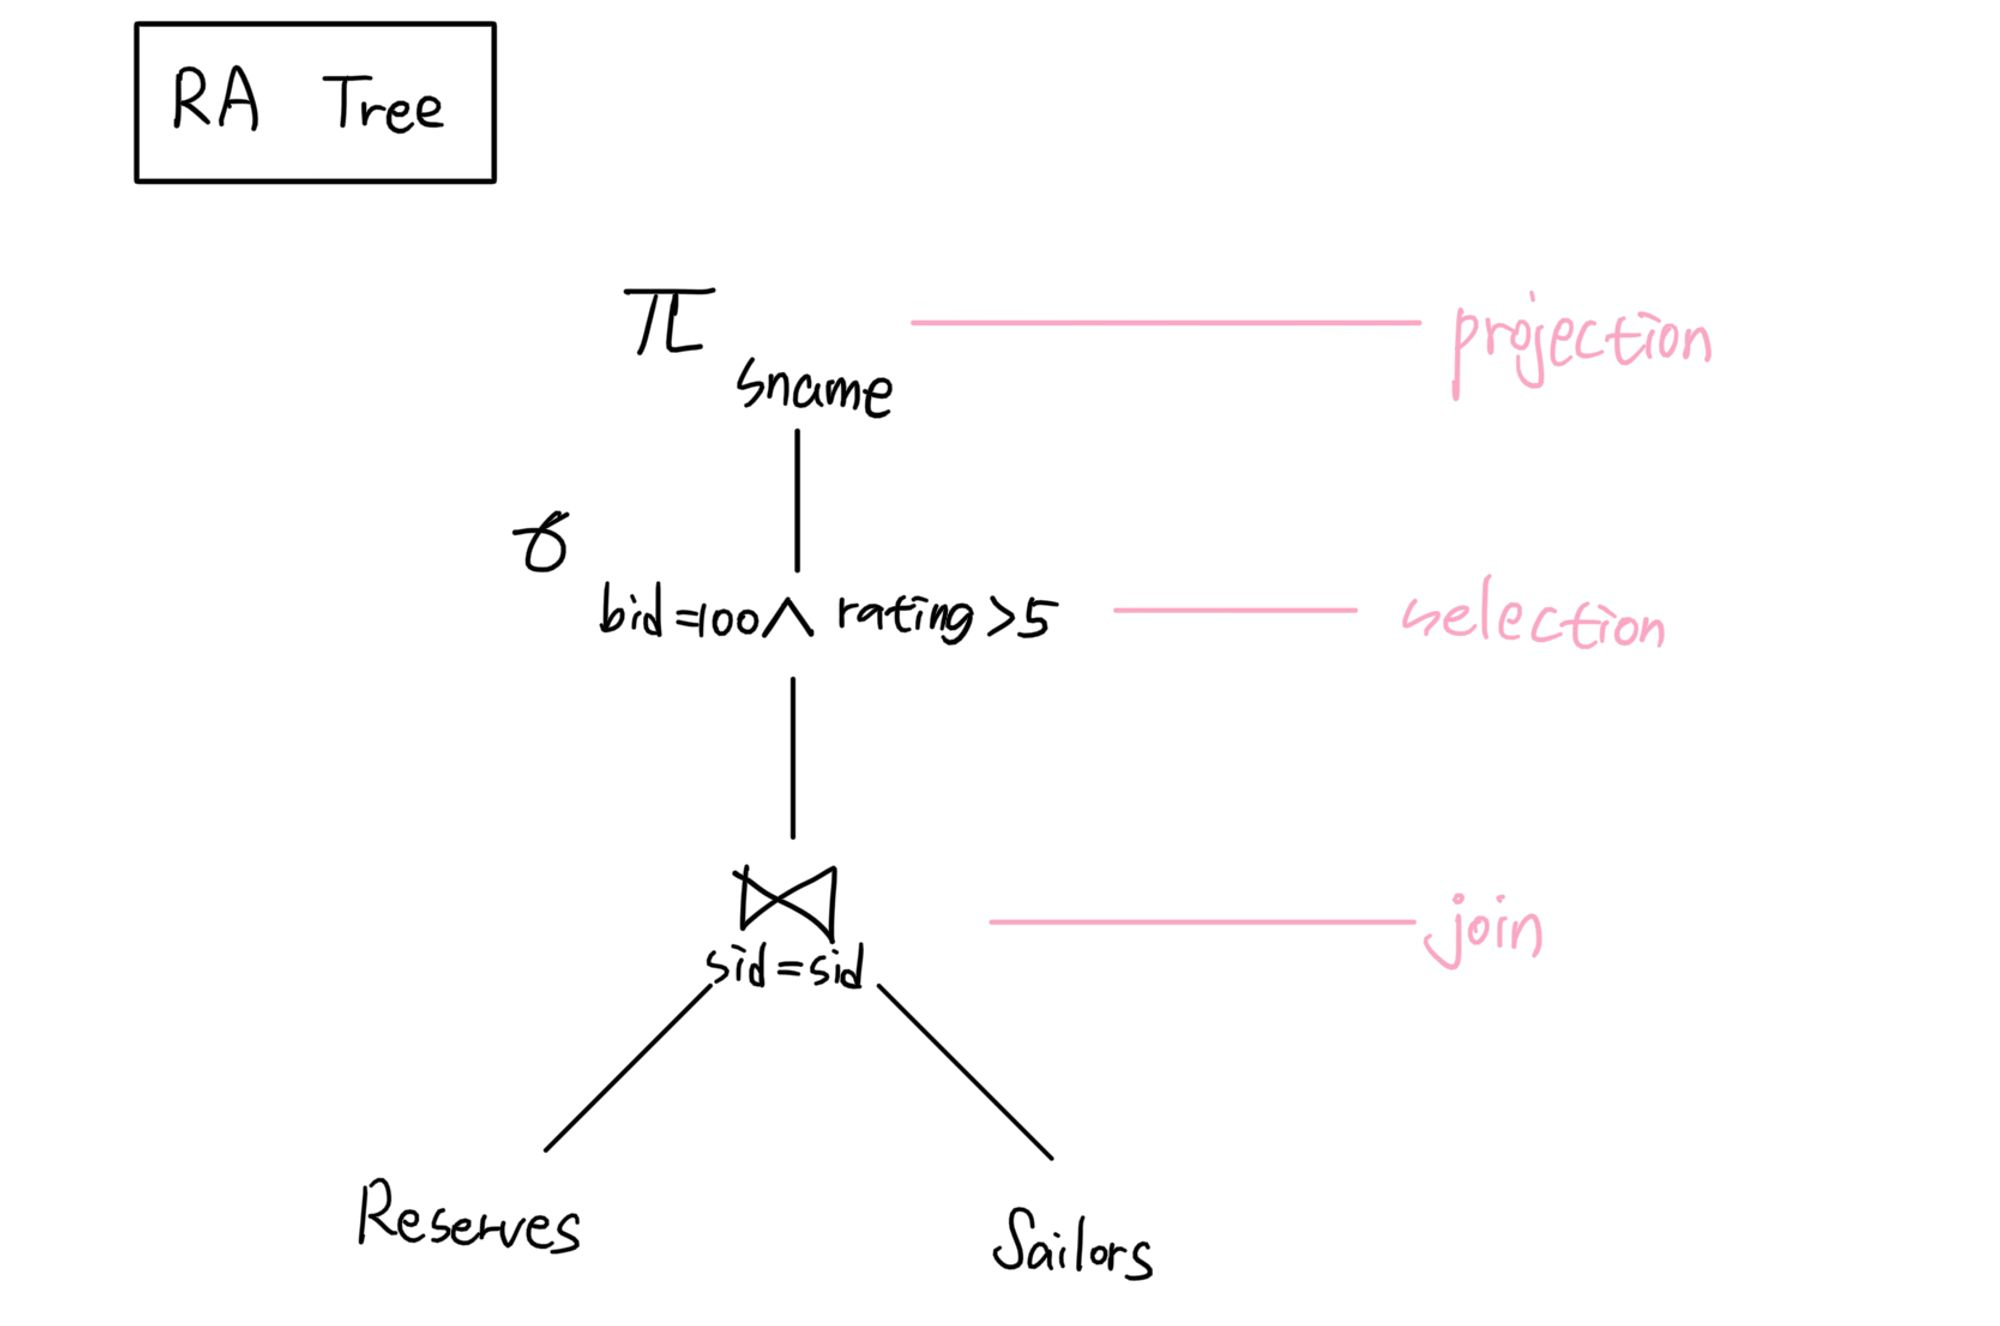 RA Tree
π sname
projection
σ bid=100∧ rating>5
selection
⋈ sid=sid
join
Reserves
Sailors